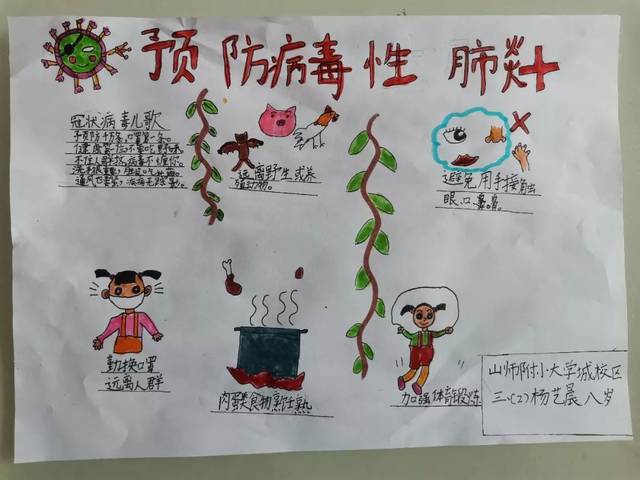 预防病毒性肺炎
冠状病毒儿歌
远离野生或养
殖动物。
避免用手接触
眼、口、鼻。
勤换口罩
远离人群
肉蛋类食物烹饪熟
加强体育锻炼
山师附小大学城校区
三、(2)杨艺晨 八岁